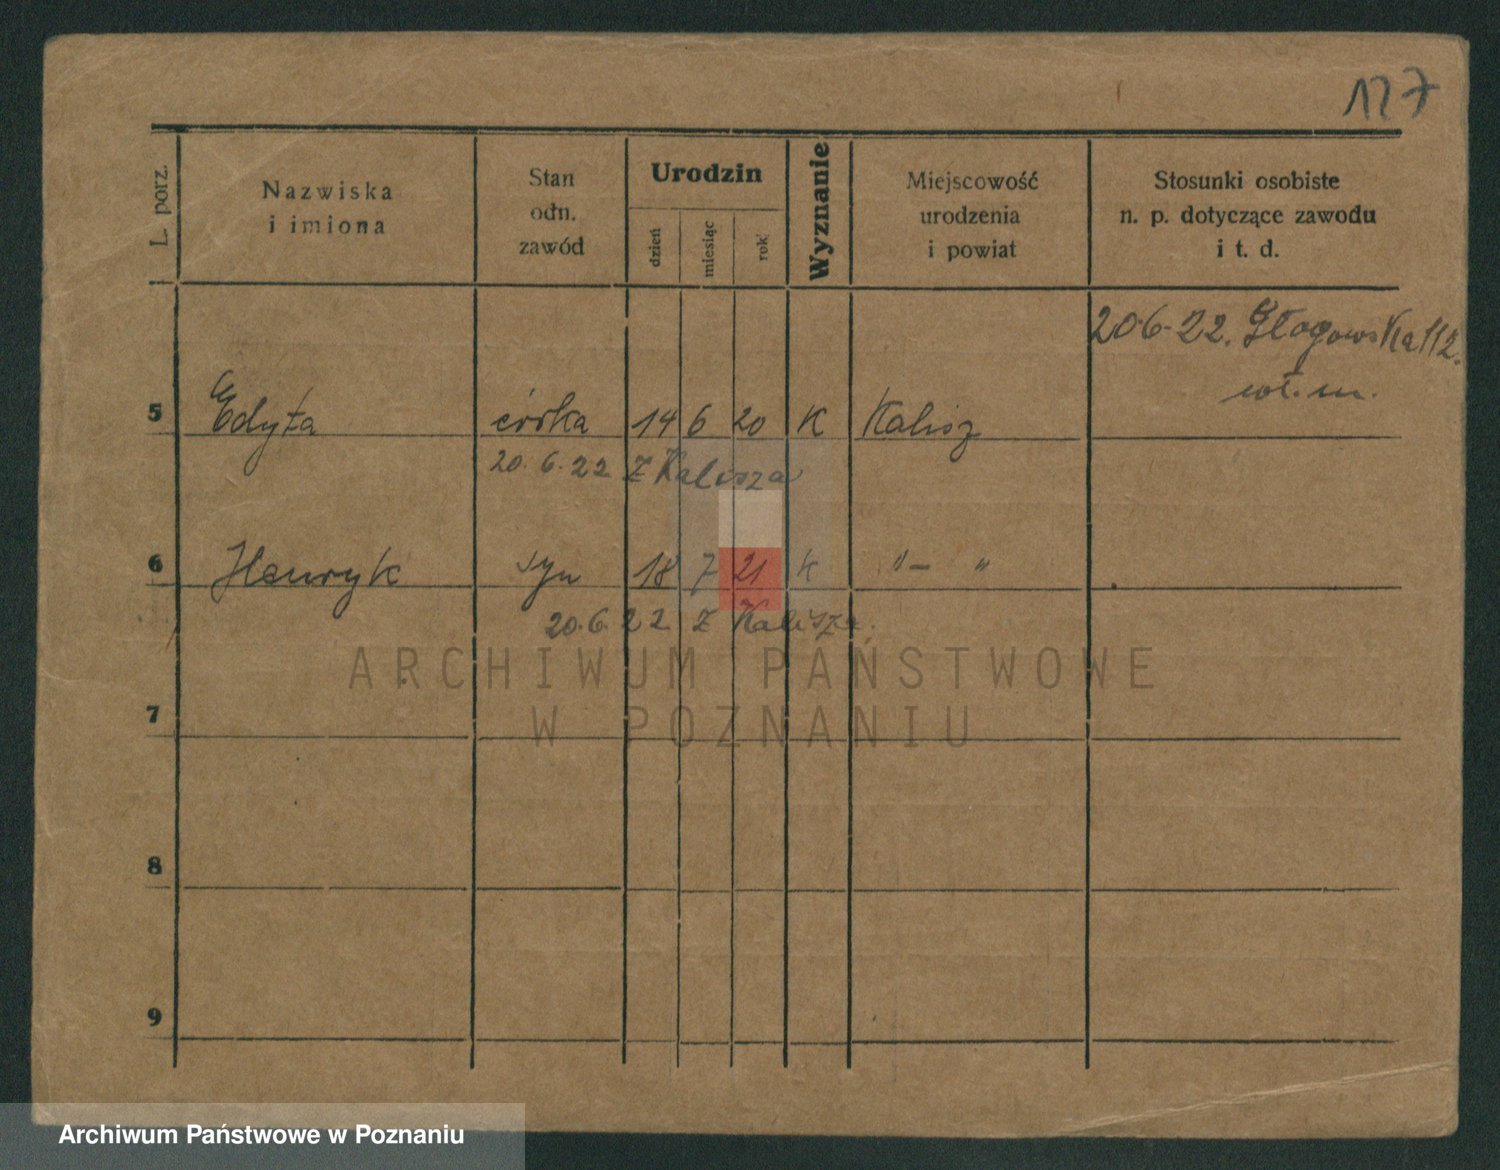 127
L. porz.
Nazwiska
i imiona
Stan
odn.
zawód
Urodzin
dzień
miesiąc
rok
Wyznanie
Miejscowość
urodzenia
i powiat
Stosunki osobiste
n. p. dotyczące zawodu
i t. d.
20.6.22. Głogowska 112.
wł. m.
5 Edyta córka 14 6 20 K Kalisz
20.6.22 z Kalisza
6 Henryk syn 18 7 21 K "– "
20.6.22 z Kalisza.
ARCHIWUM PAŃSTWOWE
W POZNANIU
7
8
9
Archiwum Państwowe w Poznaniu